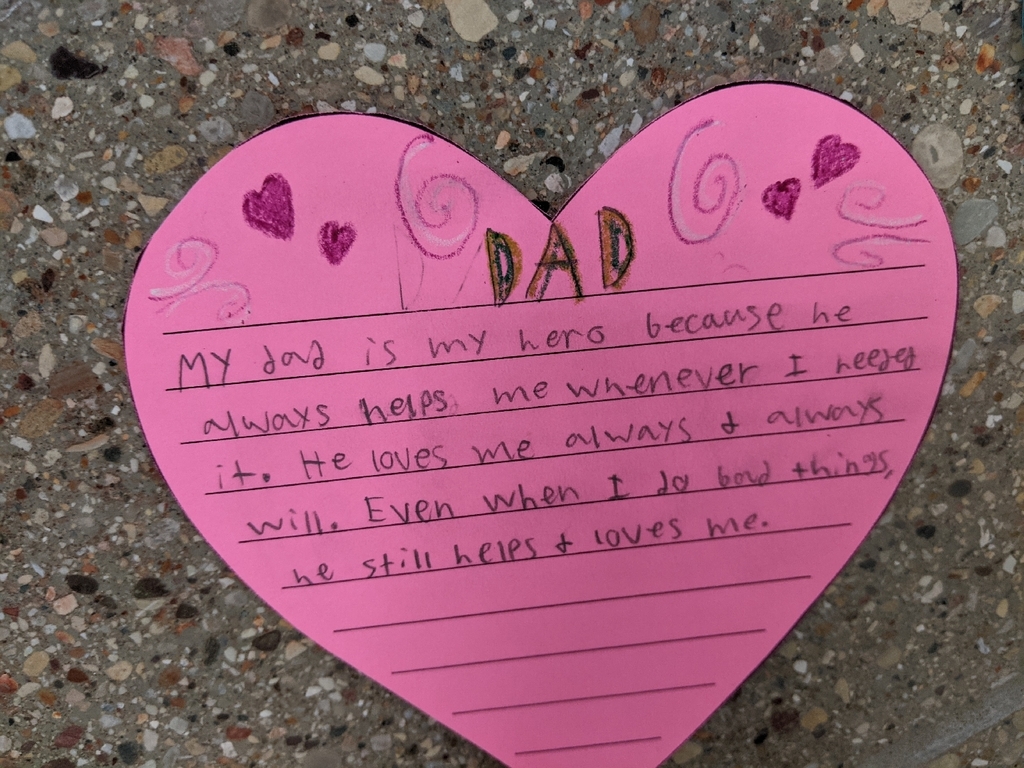 DAD
MY dad is my hero because he
always helps me whenever I needed
it. He loves me always & always
will. Even when I do bad things,
he still helps & loves me.